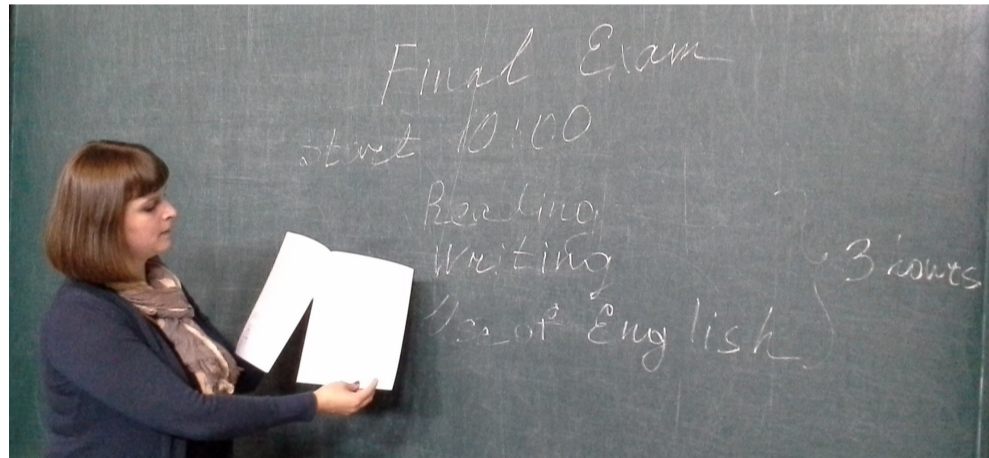 Final Exam
start 10:00
Reading
Writing
Use of English
3 hours